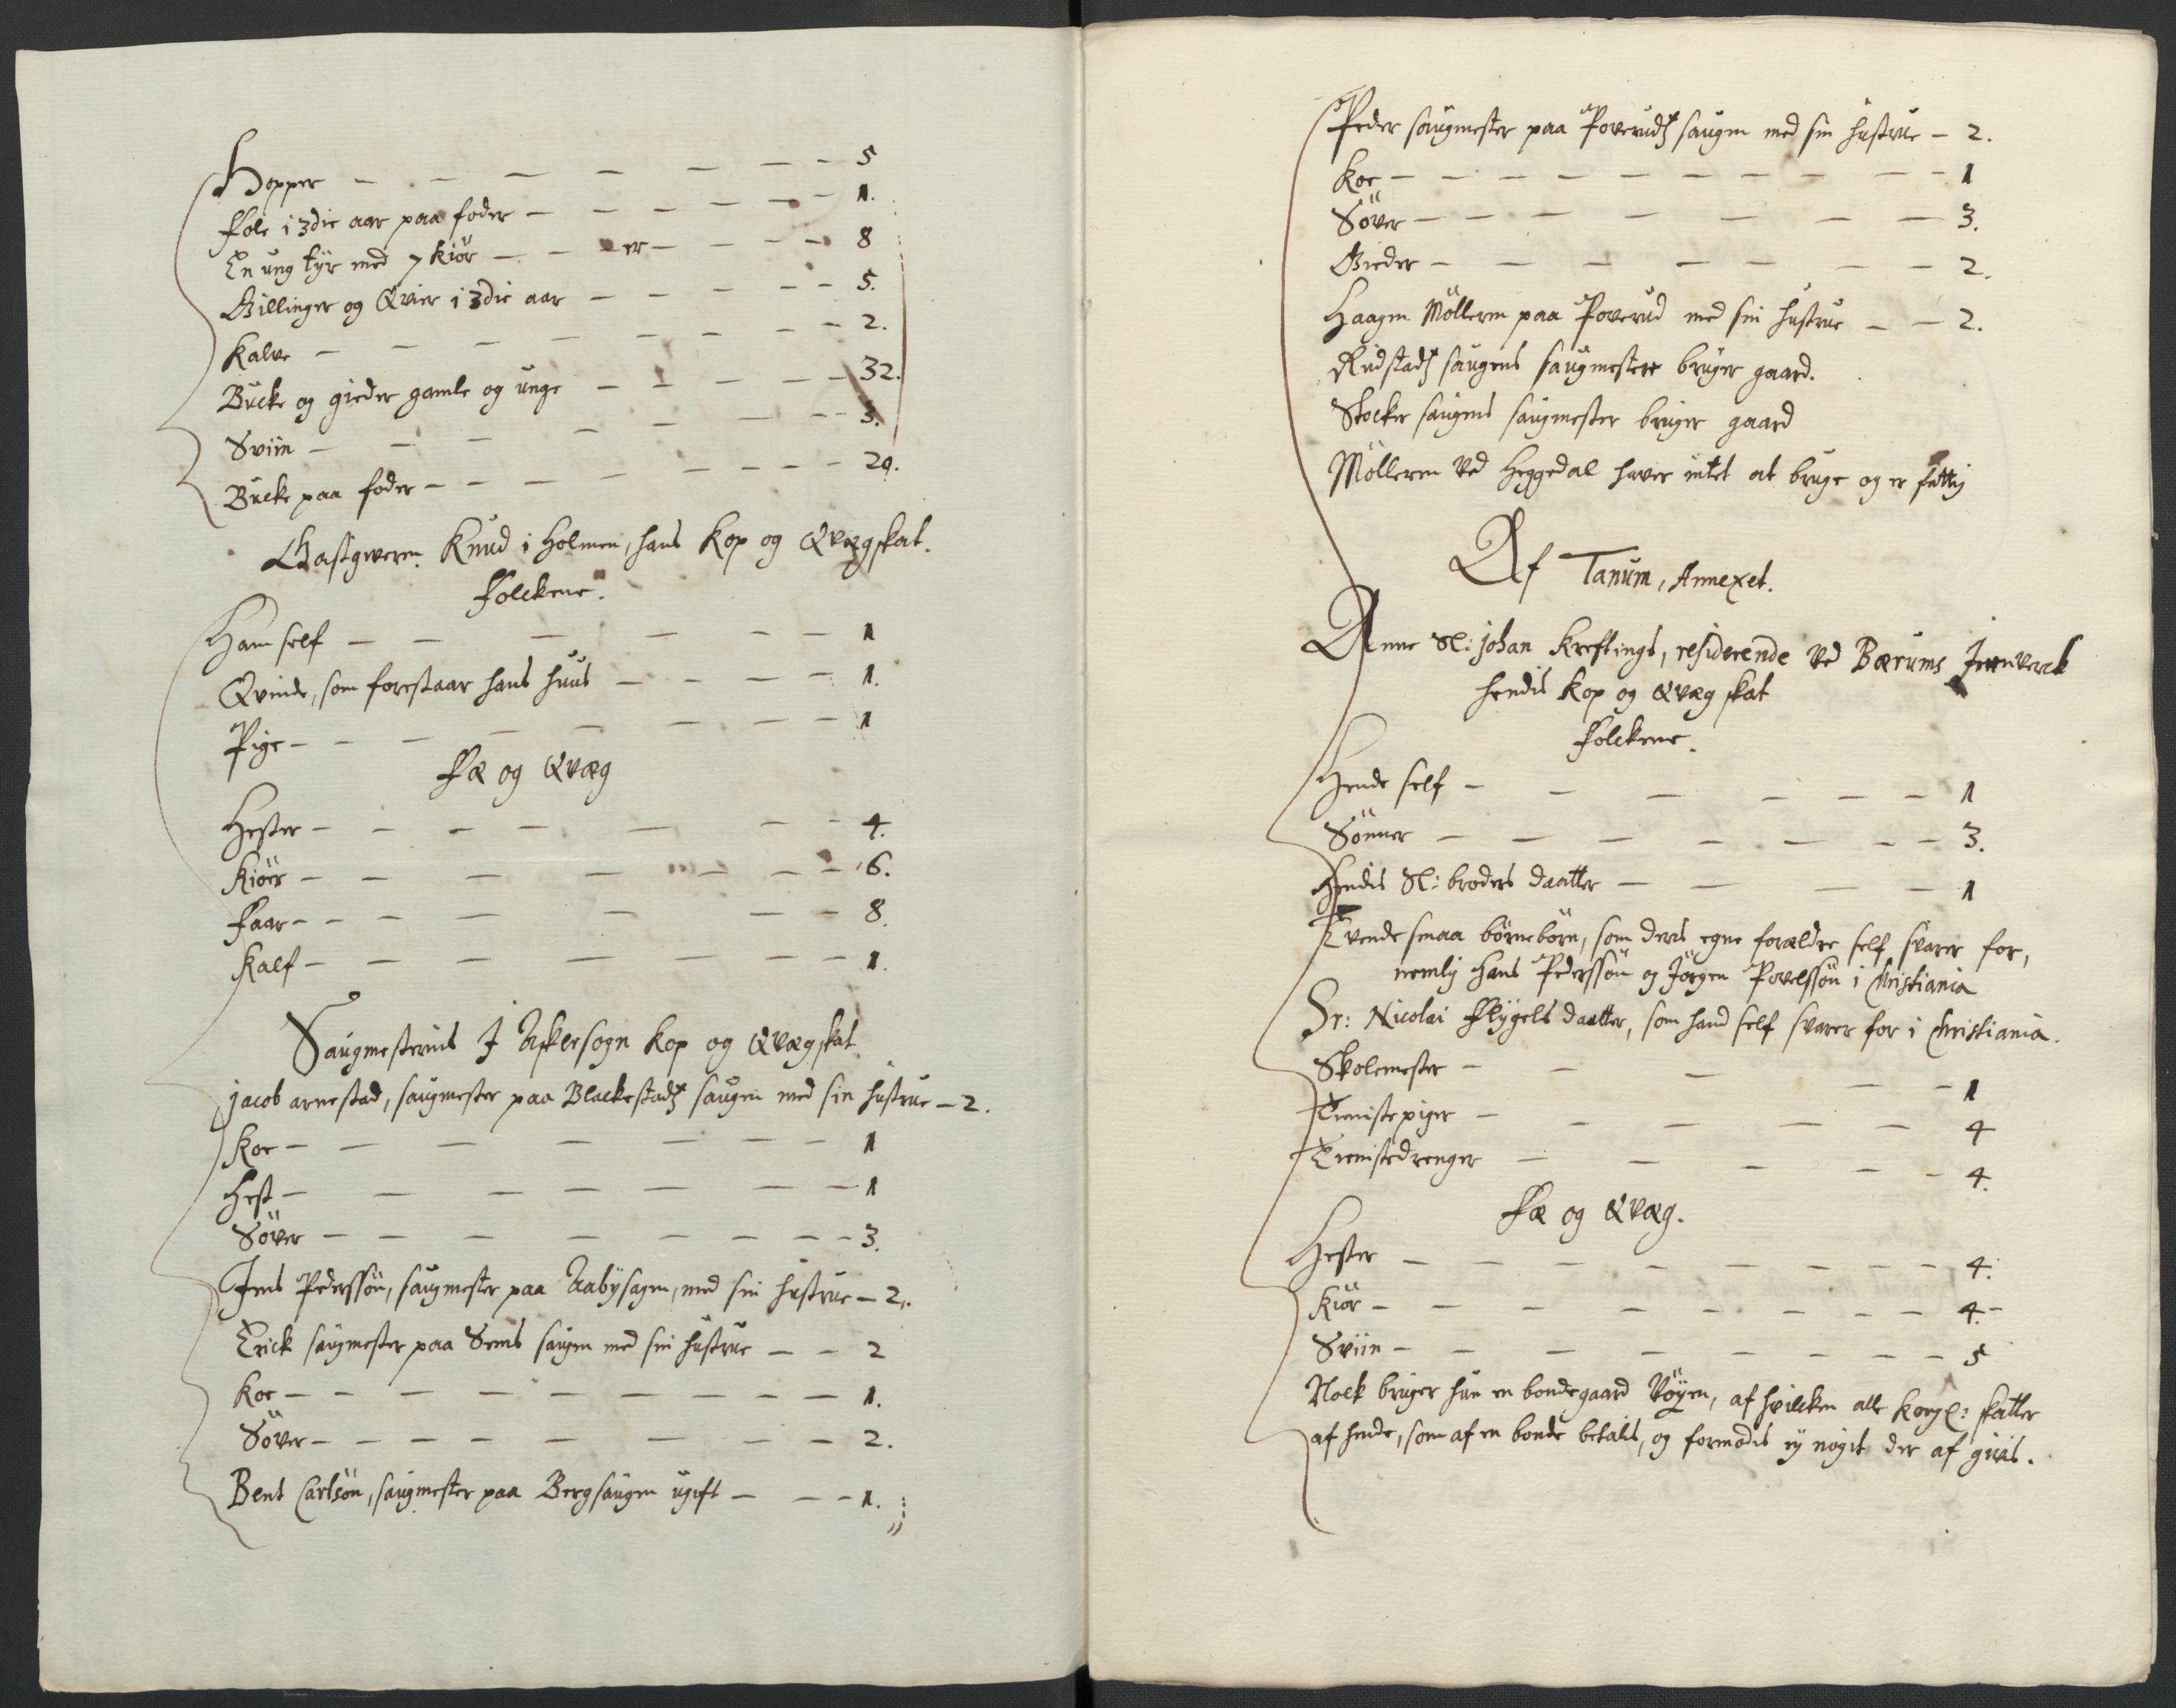 Hopper — — — — — — — 5
Fole i 3die aar paa foder — — — — — — 1.
En ung tyr med 7 kiör — — — er — — — — 8
Gillinger og Qvier i 3die aar — — — — — 5.
Kalve — — — — — — — — 2.
Bucke og gieder gamle og unge — — — — — 32.
Sviin — — — — — — — — 3.
Bucke paa foder — — — — — — — — 20.
Gastgiveren Knud i Holmen, hans Kop og Qvægskat.
Folckene.
Ham self — — — — — — 1
Qvinde, som forestaar hans huus — — — — — 1.
Pige — — — — — — — — 1
Fæ og Qvæg
Hester — — — — — — — 4.
Kiöer — — — — — — — 6.
Faar — — — — — — — 8.
Kalf — — — — — — — — 1.
Saugmesterens I Askersogn Kop og Qvægskat
Jacob arnestad, saugmester paa Blackestadz saugen med sin hustrue — 2.
Koe — — — — — — — 1
Hest — — — — — — — — 1
Söver — — — — — — — — — 3.
Jens Pederssön, saugmester paa Aabysagen, med sin hustrue — 2.
Erick saugmester paa Sems saugen med sin hustrue — — 2
Koe — — — — — — — — — 1.
Söver — — — — — — — — — 2.
Bent Carlsön, saugmester paa Bergsaugen ugift — — — 1.
Peder saugmester paa Poverudz saugen med sin hustrue — 2.
Koe — — — — — — — — — — 1
Söver — — — — — — — — 3.
Gieder — — — — — — — — 2.
Haagen Mölleren paa Poverud med sin hustrue — — 2.
Rudstadz saugens saugmester bruger gaard.
Stocker saugens saugmester bruger gaard
Mölleren ved Heggedal haver intet at bruge og er fattig
Af Tanum, Annexet.
Anne Sl: Johan Kreftings, residerende ved Bærums Jernverck
hendis Kop og Qvæg skat
Folckene.
Hende self — — — — — — 1
Sönner — — — — — — — — 3.
Hendis Sl: broders daatter — — — — 1
Tvende smaa börnebörn, som deris egne forældre self svarer for,
nemlig Hans Pederssön og Jörgen Povelssön i Christiania
Sr: Nicolai Flygels daatter, som hand self svarer for i Christiania.
Skolemester — — — — — 1
Tienistepiger — — — — — 4
Tienistedrenger — — — — — 4.
Fæ og Qvæg.
Hester — — — — — — — — — 4.
Kiör — — — — — — — — — 4. —
Sviin — — — — — — — — — 5
Nock bruger hun en bondegaard Vöyen, af hvilcken alle Kongl: skatter
af hende, som af en bonde betalis, og formodis ey nogit der af givis.